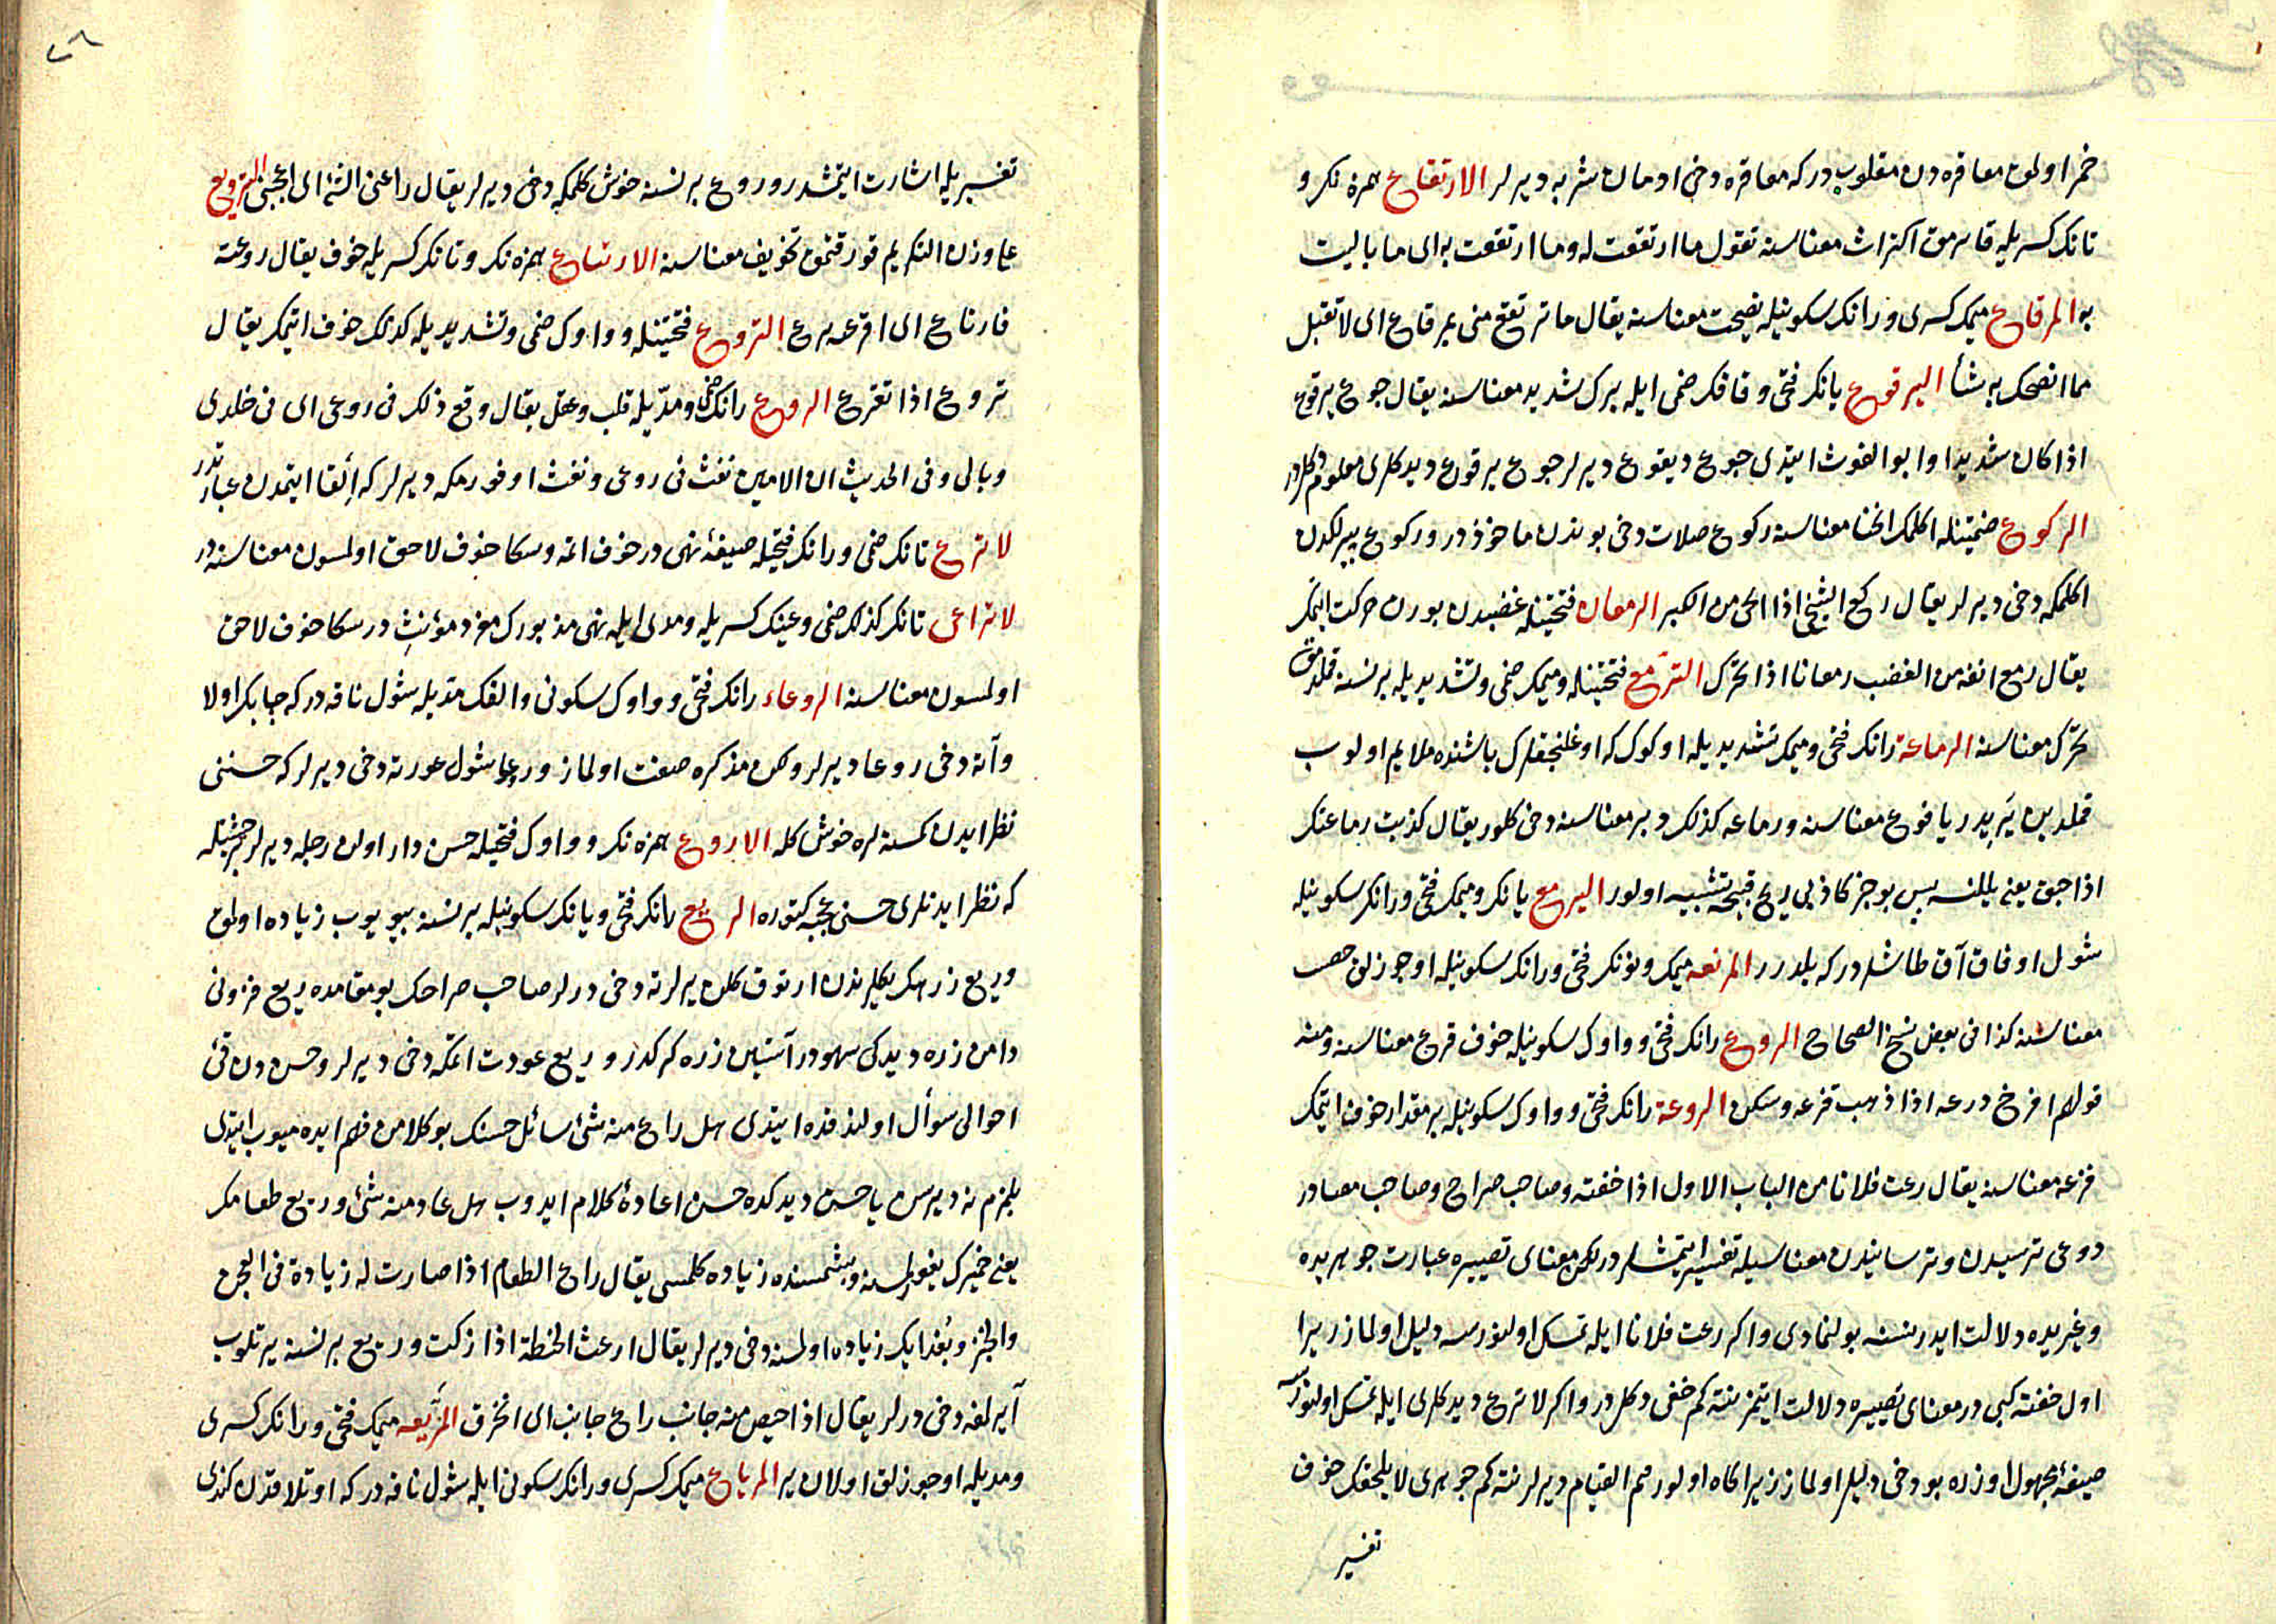 خمر اولمق معاقره دن مقلوب در که معاقره دخی ادمان شربه دیرلر الارتقاع همزه نک و
تانک کسریله قایرمق اکتراث معناسنه تقول ما ارتقعت له وما ارتقعت به ای ما بالیت
به المرقاع میمک کسری و رانک سکونیله نصیحت معناسنه یقال ما ترتقع منی بمرقاع ای لا تقبل
مما انصحک به شأ الیرقوع یانک فتحی و قافک ضمی ایله برک شدید معناسنه یقال جوع یرقوع
اذا کان شدیدا و ابو الغوث ایتدی جوع دیقوع دیرلر جوع یرقوع دیدکلری معلوم دکلدر
الرکوع ضمتینله اکلمک انحنا معناسنه رکوع صلات دخی بوندن ماخوذ در و رکوع پیرلکدن
اکلمکه دخی دیرلر یقال رکع الشیخ اذا انحنی من الکبر الرمعان فتحتینله غضبدن بورن حرکت ایتمک
یقال رمع انفه من الغضب رمعانا اذا تحرک الترمع فتحتینله و میمک ضمی و تشدیدیله بر نسنه قلدمق
تحرک معناسنه الرماعة رانک فتحی و میمک تشدیدیله اوکوک که اوغلنجقلرک باشنده ملایم اولوب
قلدین یَریدر یافوخ معناسنه و رماعه کذلک دبر معناسنه دخی کلور یقال کذبت رماعتک
اذا حبق یعنی یللنسه پس بو جز کاذبی ریح قبیحه تشبیه اولور الیرمع یانک و میمک فتحی و رانک سکونیله
شول اوفاق آق طاشلردر که یلدرر المرنعه میمک و نونک فتحی و رانک سکونیله اوجوزلق خصب
معناسنه کذا فی بعض نسخ الصحاح الروع رانک فتحی و واوک سکونیله خوف فزع معناسنه ومنه
قولهم افرخ روعه اذا ذهب فزعه وسکن الروعة رانک فتحی و واوک سکونیله بر مقدار خوف ایتمک
فزعه معناسنه یقال رعت فلانا من الباب الاول اذا خفته و صاحب صراح و صاحب مصادر
روعی ترسیدن و ترسانیدن معناسیله تفسیر ایتمشلردر لکن معنای تصییره عبارت جوهریده
و غیریده دلالت ایدر نسنه بولنمادی و اکر رعت فلانا ایله تمسک اولنورسه دلیل اولماز زیرا
اول خفته کبی در معنای تصییره دلالت ایتمز نتکم خفی دکلدر و اکر لا ترع دیدکلری ایله تمسک اولنورسه
صیغهٔ مجهول اوزره بو دخی دلیل اولماز زیرا کاه اولور قم القیام دیرلر نتکم جوهری لا یلحقک خوف
تفسیر
٢٠٦
تفسیریله اشارت ایتمشدر و روع بر نسنه خوش کلمکه دخی دیرلر یقال راعنی الشئ ای اعجبنی الترویع
علی وزن التکریم قورقتمق تخویف معناسنه الارتیاع همزه نک و تانک کسریله خوف یقال روعته
فارتاع ای افزعه ففزع التروع فتحتینله و واوک ضمی و تشدیدیله کذلک خوف ایتمک یقال
تروع اذا تفزع الروع رانک ضمی و مدیله قلب و عقل یقال وقع ذلک فی روعی ای فی خلدی
و بالی و فی الحدیث ان الامین نفث فی روعی و نفث اوفورمکه دیرلر که اِلقا ایتمدن عبارتدر
لا ترع تانک ضمی و رانک فتحیله صیغهٔ نهی در خوف اتمه و سکا خوف لاحق اولمسون معناسنه در
لا تراعی تانک کذلک ضمی و عینک کسریله و مدی ایله نهی مذبورک مفرد مؤنثِ در سکا خوف لاحق
اولمسون معناسنه الروعاء رانک فتحی و واوک سکونی و الفک مدیله شول ناقه در که چابک اولا
و آته دخی روعا دیرلر و لکن مذکره صفت اولماز و روعا شول عورته دخی دیرلر که حسننی
نظر ایدن کمسنه لره خوش کله الاروع همزه نک و واوک فتحیله حسن دار اولن رجله دیرلر حیثیتله
که نظر ایدنلری حسنی عجبه کتوره الریع رانک فتحی و یانک سکونیله بر نسنه بیویوب زیاده اولمق
و ریع زرهک یکلریندن ارتوق کلن یرلرنه دخی درلر صاحب صراحک بو مقامده ریع فزونی
دامن زره دیدکی سهودر آستین زره کرکدر و ریع عودت اتمکه دخی دیرلر و حسن دن قئ
احوالی سوأل اولندقده ایتدی هل راع منه شئ سائل حسنک بو کلامن فهم ایده میوب ایتدی
بلمزم نه دیرسن یا حسن دیدکده حسن اعادهٔ کلام ایدوب هل عاد منه شئ و ریع طعامک
یعنی خمیرک یغورلمسنه و بشمسنده زیاده کلمسی یقال راع الطعام اذا صارت له زیادة فی العجن
والخبز و بغدایک زیاده اولمسنه دخی دیرلر یقال ارعت الحنطة اذا زکت و ریع بر نسنه یرتلوب
آیرلمغه دخی درلر یقال اذا حیص منه جانب راع جانب ای انخرق المَریعه میمک فتحی و رانک کسری
و مدیله اوجوزلق اولان یر المریاع میمک کسری و رانک سکونی ایله شول ناقه در که اوتلاقدن کندی